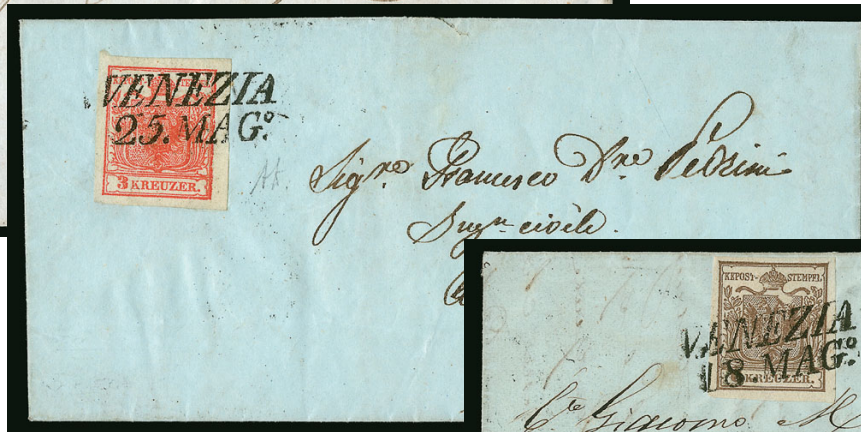 VENEZIA
25. MAG.º
3 KREUZER.
Sigre Francesco Dre Pedrini
Ingre civile.
KKPOST-STEMPEL
VENEZIA
18. MAG.º
KREUZER.
Cte Giacomo M